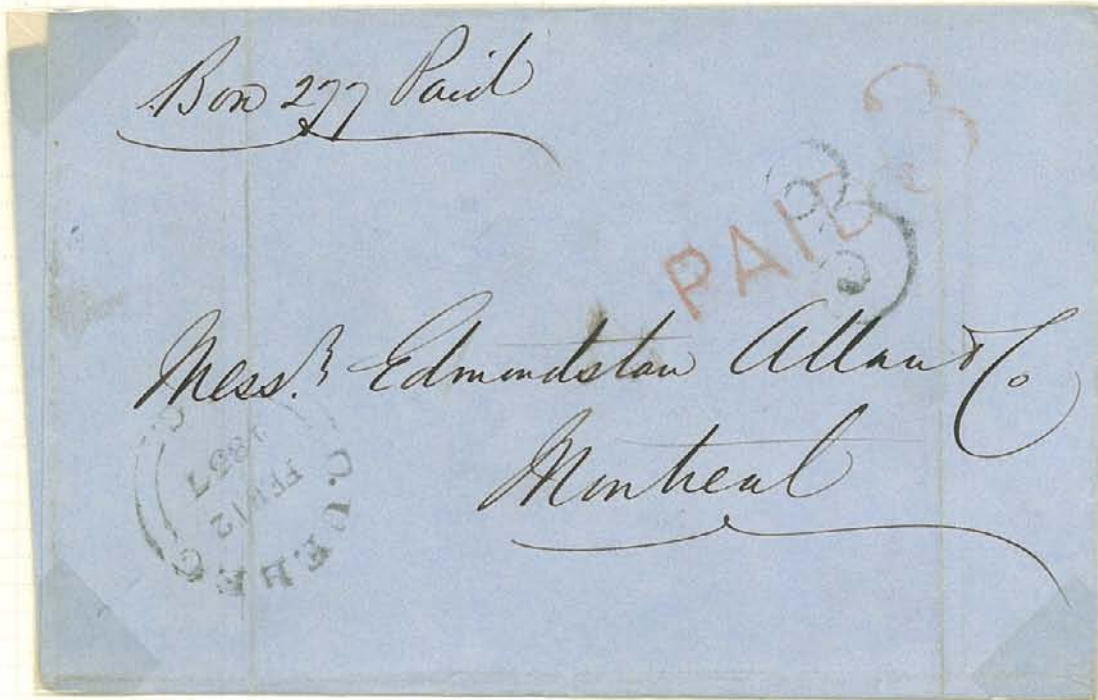 Box 277 Paid
PAID 3
3
Messrs Edmondstone Allan & Co
Montreal
QUEBEC
FEB 12
1857